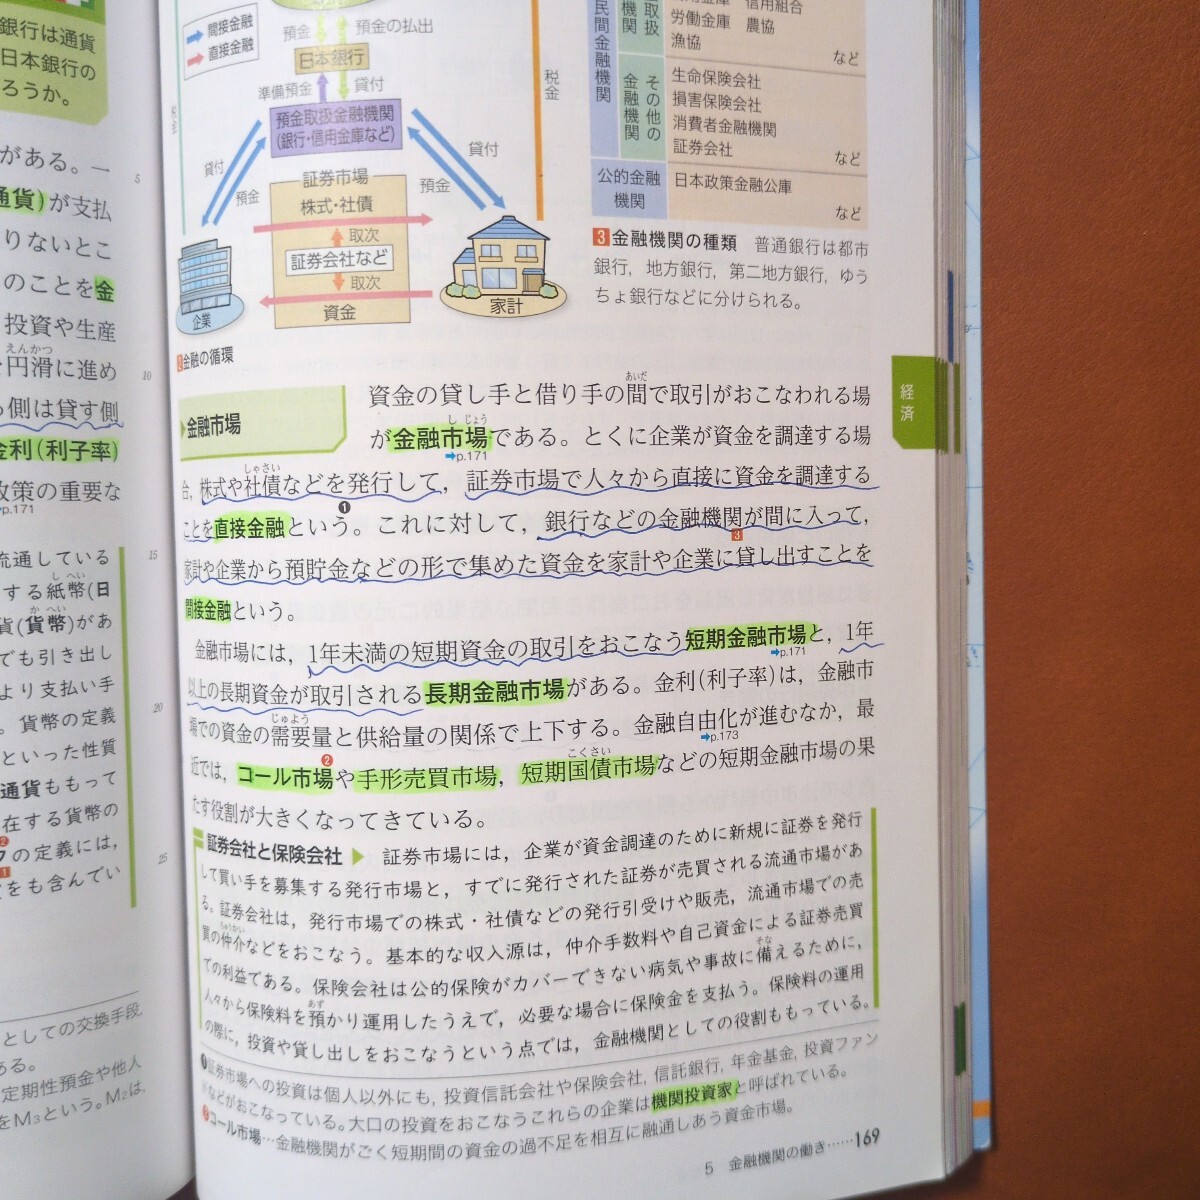 銀行は通貨
日本銀行の
ろうか。
がある。一
5
通貨)が支払
りないとこ
のことを金
投資や生産
えんかつ
円滑に進め
10
側は貸す側
金利(利子率)
政策の重要な
p.171
流通している
15
し へい
する紙幣(日
か へい
貨(貨幣)があ
でも引き出し
より支払い手
20
。貨幣の定義
といった性質
通貨ももって
在する貨幣の
の定義には,
25
をも含んでい
としての交換手段
ある。
定期性預金や他人
をM₃という。M₂は,
間接金融
直接金融
預金
預金の払出
日本銀行
準備預金
貸付
預金取扱金融機関
(銀行・信用金庫など)
貸付
預金
貸付
預金
税金
証券市場
株式・社債
取次
証券会社など
取次
資金
企業
家計
金融の循環
民間金融機関
取扱
機関
信用組合
労働金庫 農協
漁協
など
その他の
金融機関
生命保険会社
損害保険会社
消費者金融機関
証券会社
など
公的金融
機関
日本政策金融公庫
など
3 金融機関の種類 普通銀行は都市
銀行, 地方銀行, 第二地方銀行, ゆう
ちょ銀行などに分けられる。
経済
金融市場
あいだ
資金の貸し手と借り手の間で取引がおこなわれる場
し じょう
が金融市場である。とくに企業が資金を調達する場
➡p.171
しゃさい
合, 株式や社債などを発行して, 証券市場で人々から直接に資金を調達する
❶
ことを直接金融という。これに対して, 銀行などの金融機関が間に入って,
3
家計や企業から預貯金などの形で集めた資金を家計や企業に貸し出すことを
間接金融という。
金融市場には, 1年未満の短期資金の取引をおこなう短期金融市場と, 1年
➡p.171
以上の長期資金が取引される長期金融市場がある。金利(利子率)は, 金融市
じゅよう
場での資金の需要量と供給量の関係で上下する。金融自由化が進むなか, 最
➡p.173
こくさい
近では, コール市場❷や手形売買市場, 短期国債市場などの短期金融市場の果
たす役割が大きくなってきている。
証券会社と保険会社 ▶ 証券市場には, 企業が資金調達のために新規に証券を発行
して買い手を募集する発行市場と, すでに発行された証券が売買される流通市場があ
る。証券会社は, 発行市場での株式・社債などの発行引受けや販売, 流通市場での売
ちゅうかい
買の仲介などをおこなう。基本的な収入源は, 仲介手数料や自己資金による証券売買
そな
での利益である。保険会社は公的保険がカバーできない病気や事故に備えるために,
あず
人々から保険料を預かり運用したうえで, 必要な場合に保険金を支払う。保険料の運用
の際に, 投資や貸し出しをおこなうという点では, 金融機関としての役割ももっている。
❶証券市場への投資は個人以外にも, 投資信託会社や保険会社, 信託銀行, 年金基金, 投資ファン
などがおこなっている。大口の投資をおこなうこれらの企業は機関投資家と呼ばれている。
❷コール市場…金融機関がごく短期間の資金の過不足を相互に融通しあう資金市場。
5 金融機関の働き……169